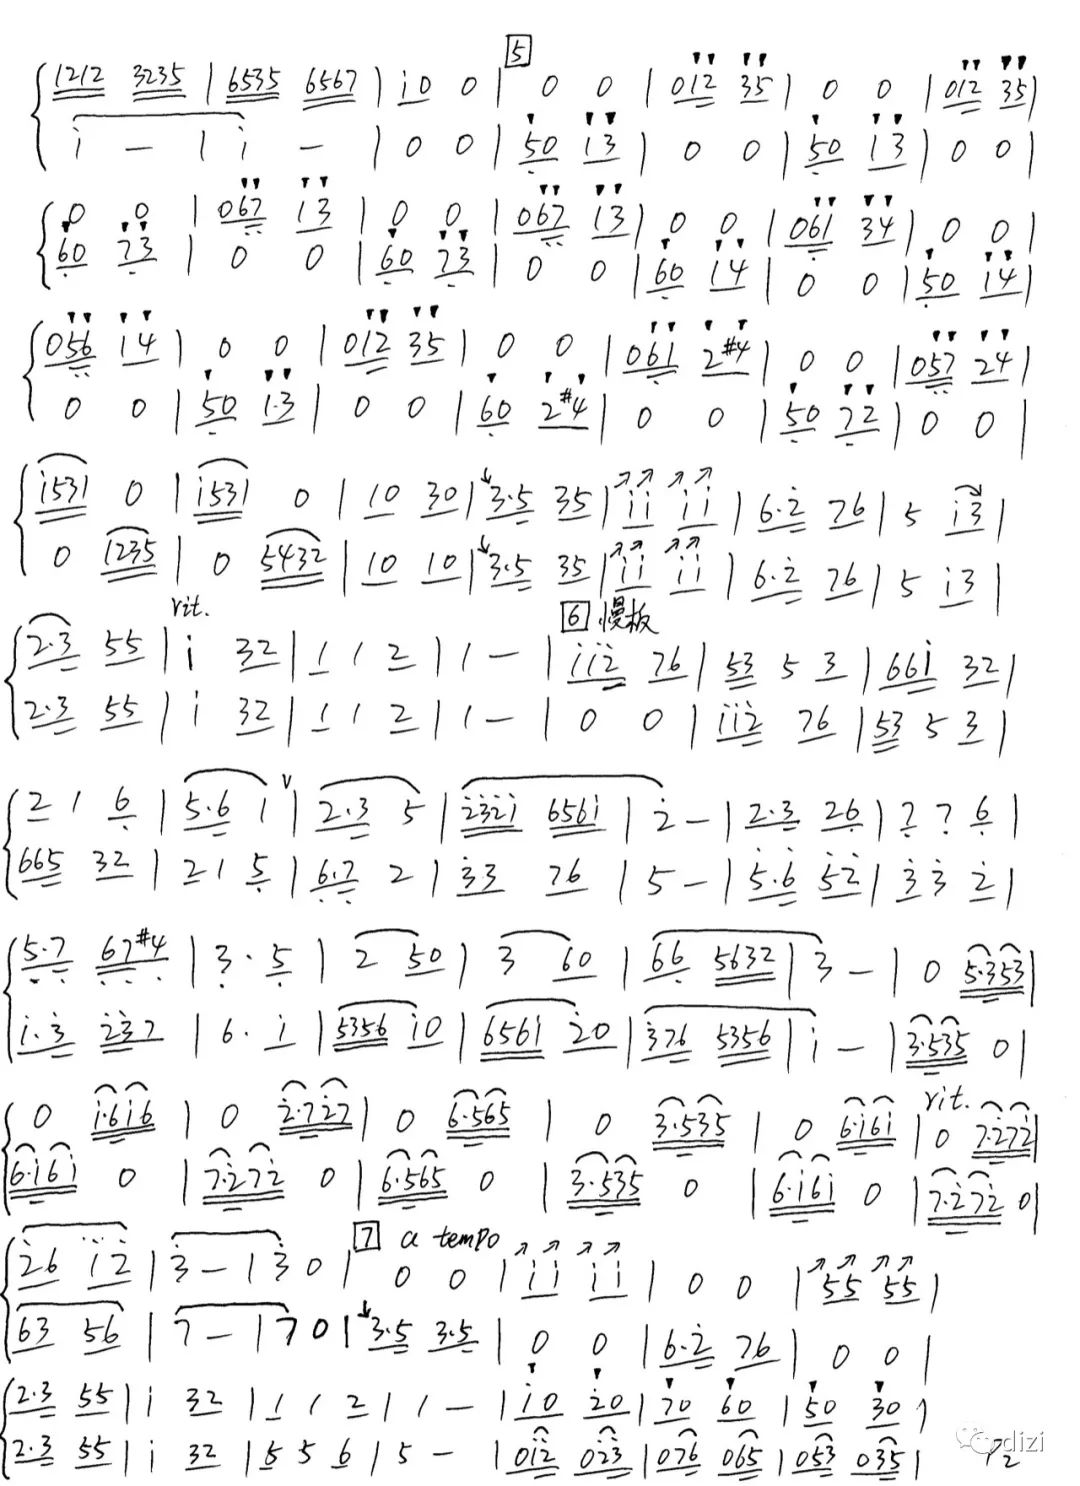 5
1212 3235 | 6535 6567 | i0 0 | 0 0 | 012 35 | 0 0 | 012 35 |
i — | i — | 0 0 | 50 13 | 0 0 | 50 13 | 0 0 |
0 0 | 067 13 | 0 0 | 067 13 | 0 0 | 061 34 | 0 0 |
60 73 | 0 0 | 60 73 | 0 0 | 60 14 | 0 0 | 50 14 |
056 14 | 0 0 | 012 35 | 0 0 | 061 2#4 | 0 0 | 057 24 |
0 0 | 50 1·3 | 0 0 | 60 2#4 | 0 0 | 50 72 | 0 0 |
i531 0 | i531 0 | 10 30 | 3·5 35 | ii ii | 6·2 76 | 5 i3 |
0 1235 | 0 5432 | 10 10 | 3·5 35 | ii ii | 6·2 76 | 5 i3 |
rit. 6 慢板
2·3 55 | i 32 | 1 1 2 | 1 — | ii2 76 | 53 5 3 | 66i 32 |
2·3 55 | i 32 | 1 1 2 | 1 — | 0 0 | ii2 76 | 53 5 3 |
2 1 6 | 5·6 1 ∨ | 2·3 5 | 232i 656i | 2 — | 2·3 26 | 7 7 6 |
665 32 | 2 1 5 | 6·7 2 | 33 76 | 5 — | 5·6 52 | 3 3 2 |
5·7 67#4 | 3 · 5 | 2 50 | 3 60 | 66 5632 | 3 — | 0 5·353 |
i·3 237 | 6 · i | 5356 i0 | 656i 20 | 376 5356 | i — | 3·535 0 |
rit.
0 i·6i6 | 0 2·727 | 0 6·565 | 0 3·535 | 0 6·i6i | 0 7·272 |
6·i6i 0 | 7·272 0 | 6·565 0 | 3·535 0 | 6·i6i 0 | 7·272 0 |
7 a tempo
26 i2 | 3 — | 3 0 | 0 0 | ii ii | 0 0 | 55 55 |
63 56 | 7 — | 7 0 | 3·5 3·5 | 0 0 | 6·2 76 | 0 0 |
2·3 55 | i 32 | 1 1 2 | 1 — | i0 20 | 70 60 | 50 30 |
2·3 55 | i 32 | 5 5 6 | 5 — | 0i2 023 | 076 065 | 053 035 |
dizi
72